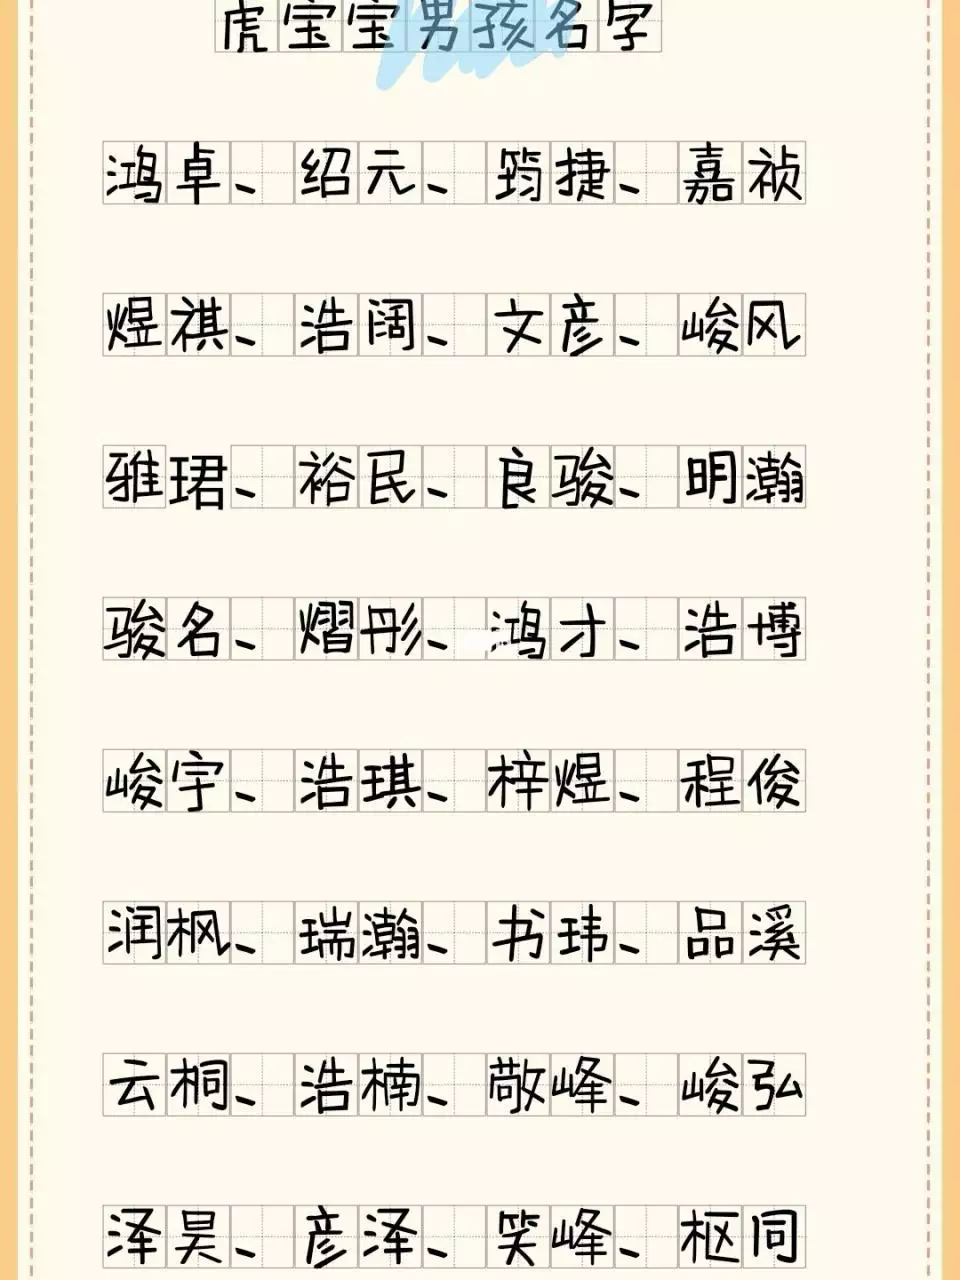 虎宝宝男孩名字
鸿卓、绍元、筠捷、嘉祯
煜祺、浩阔、文彦、峻风
雅珺、裕民、良骏、明瀚
骏名、熠彤、鸿才、浩博
峻宇、浩琪、梓煜、程俊
润枫、瑞瀚、书玮、品溪
云桐、浩楠、敬峰、峻弘
泽昊、彦泽、笑峰、枢同